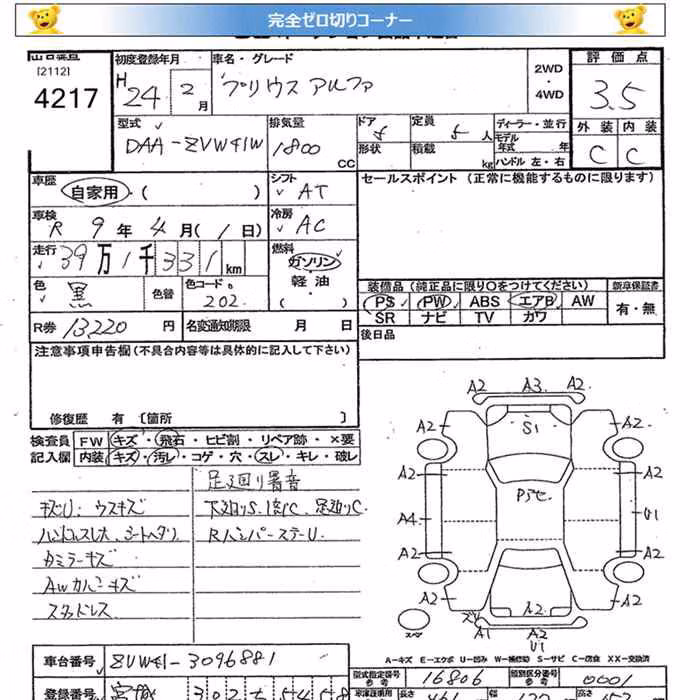 完全ゼロ切りコーナー
[2112]
4217
初度登録年月
H 24 2 月
車名・グレード
プリウス アルファ
2WD
・
4WD
評価点
3.5
外装 内装
C C
型式
DAA-ZVW41W
排気量
1800 CC
ドア 5
定員 5 人
形状
積載 kg
ディーラー・並行
モデル年式 年
ハンドル 左・右
車歴
自家用・( )
シフト
AT
車検
R 9 年 4 月( 1 日)
冷房
AC
走行
39万1千331km
燃料
ガソリン
軽油
( ・ )
色
黒
色替
色コード
202
R券 13,220 円
名変通知期限 月 日
セールスポイント (正常に機能するものに限ります)
装備品(純正品に限り○をつけてください)
PS PW ABS エアB AW
SR ナビ TV カワ
新車保証書
有・無
後日品
注意事項申告欄(不具合内容等は具体的に記入して下さい)
修復歴 有 〔箇所 〕
検査員記入欄
FW キズ・飛石・ヒビ割・リペア跡・×要
内装 キズ・汚レ・コゲ・穴・スレ・キレ・破レ
足廻り異音
キズU:ウスキズ
下廻りS.
足廻りC
ハンドルスレ大、シートヘタリ
RバンパーステーU.
ミラーキズ
AWカバーキズ
スタッドレス
A2 A3 A2
A2 S1 A2
A2 A2
A4 U1
A2 A2
A2 A2 A2
A1 A2
U1
A-キズ E-エクボ U-凹み W-補修跡 S-サビ C-腐食 XX-交換済
車台番号 ZVW41-3096881
型式指定番号 16806
類別区分番号 0001
登録番号 宮城 302